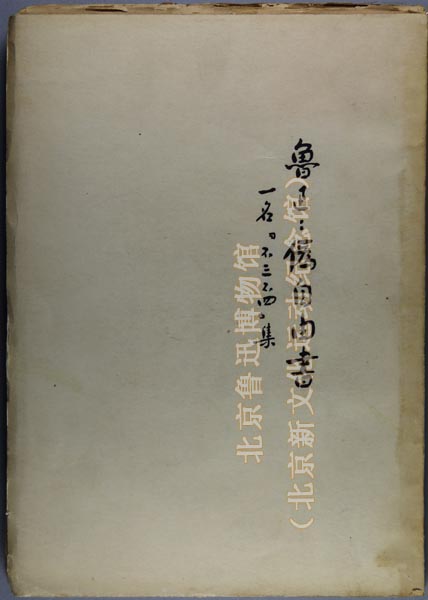 魯迅：偽自由書
一名：“不三不四”集
北京鲁迅博物馆
（北京新文化运动纪念馆）